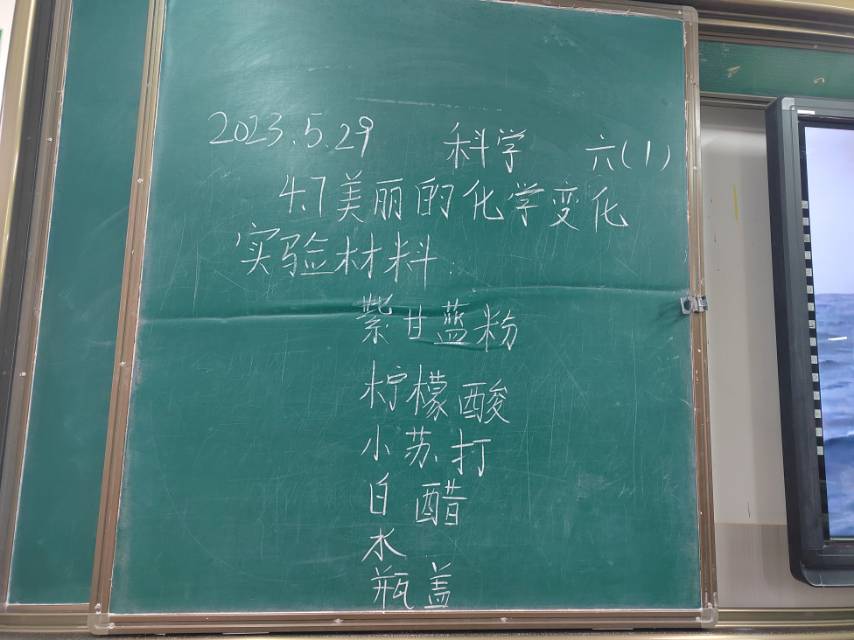 2023.5.29 科学 六(1)
4.7美丽的化学变化
实验材料
紫甘蓝粉
柠檬酸
小苏打
白醋
水
瓶盖